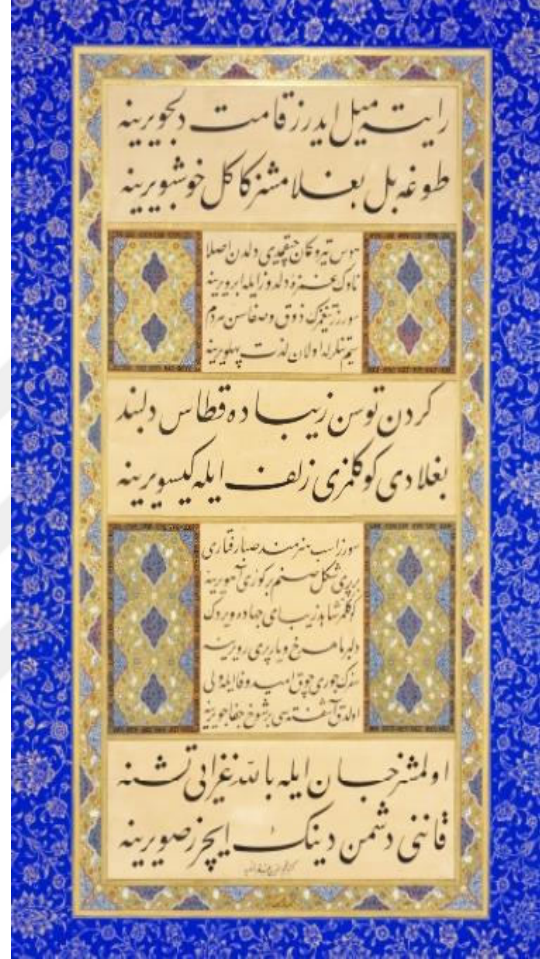 رایته میل ایدرز قامت دلجو یرینه
طوغه بل بغلامشز کاکل خوشبو یرینه
هوس تیر و کمان چیقمدی دلدن اصلا
ناوک غمزۀ دلدوز ایله ابرو یرینه
سورز تیغمزک ذوق و صفاسن هر دم
سیم تنلرله اولان لذت پهلو یرینه
کردن توسن زیباده قطاس دلبند
بغلادی کوکلمزی زلف ایله کیسو یرینه
سورز اسب هنرمند صبا رفتاری
بر پری شکل صنم بر کوزی آهو یرینه
کوکلمز شاهد زیبای جهاده ویردک
دلبر ماه رخ و یار پری رو یرینه
سفرک جوری چوق امید وفا ایله ولی
اولدق آشفته سی بر شوخ جفاجو یرینه
اولمشز جان ایله بالله غزایه تشنه
قاننی دشمن دینک ایچرز صو یرینه